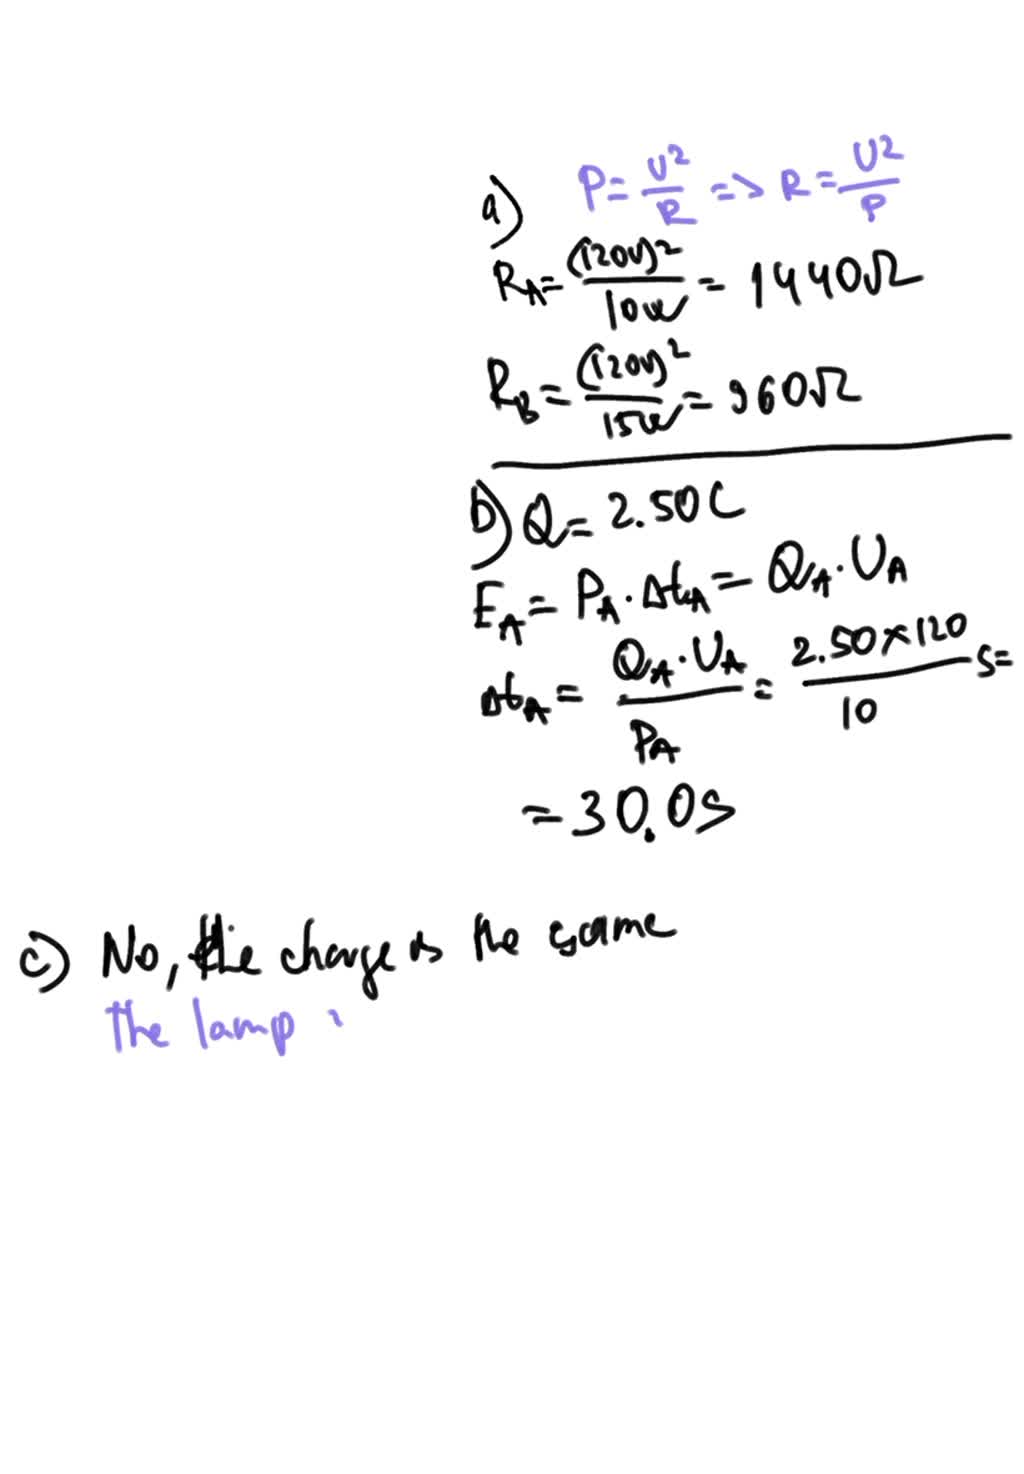 a) P = U²/R => R = U²/P
R_A = (120V)²/10W = 1440Ω
R_B = (120V)²/15W = 960Ω
b) Q = 2.50C
E_A = P_A · Δt_A = Q_A · U_A
Δt_A = Q_A · U_A / P_A = 2.50×120 / 10 s =
= 30.0s
c) No, the charge is the same
the lamp